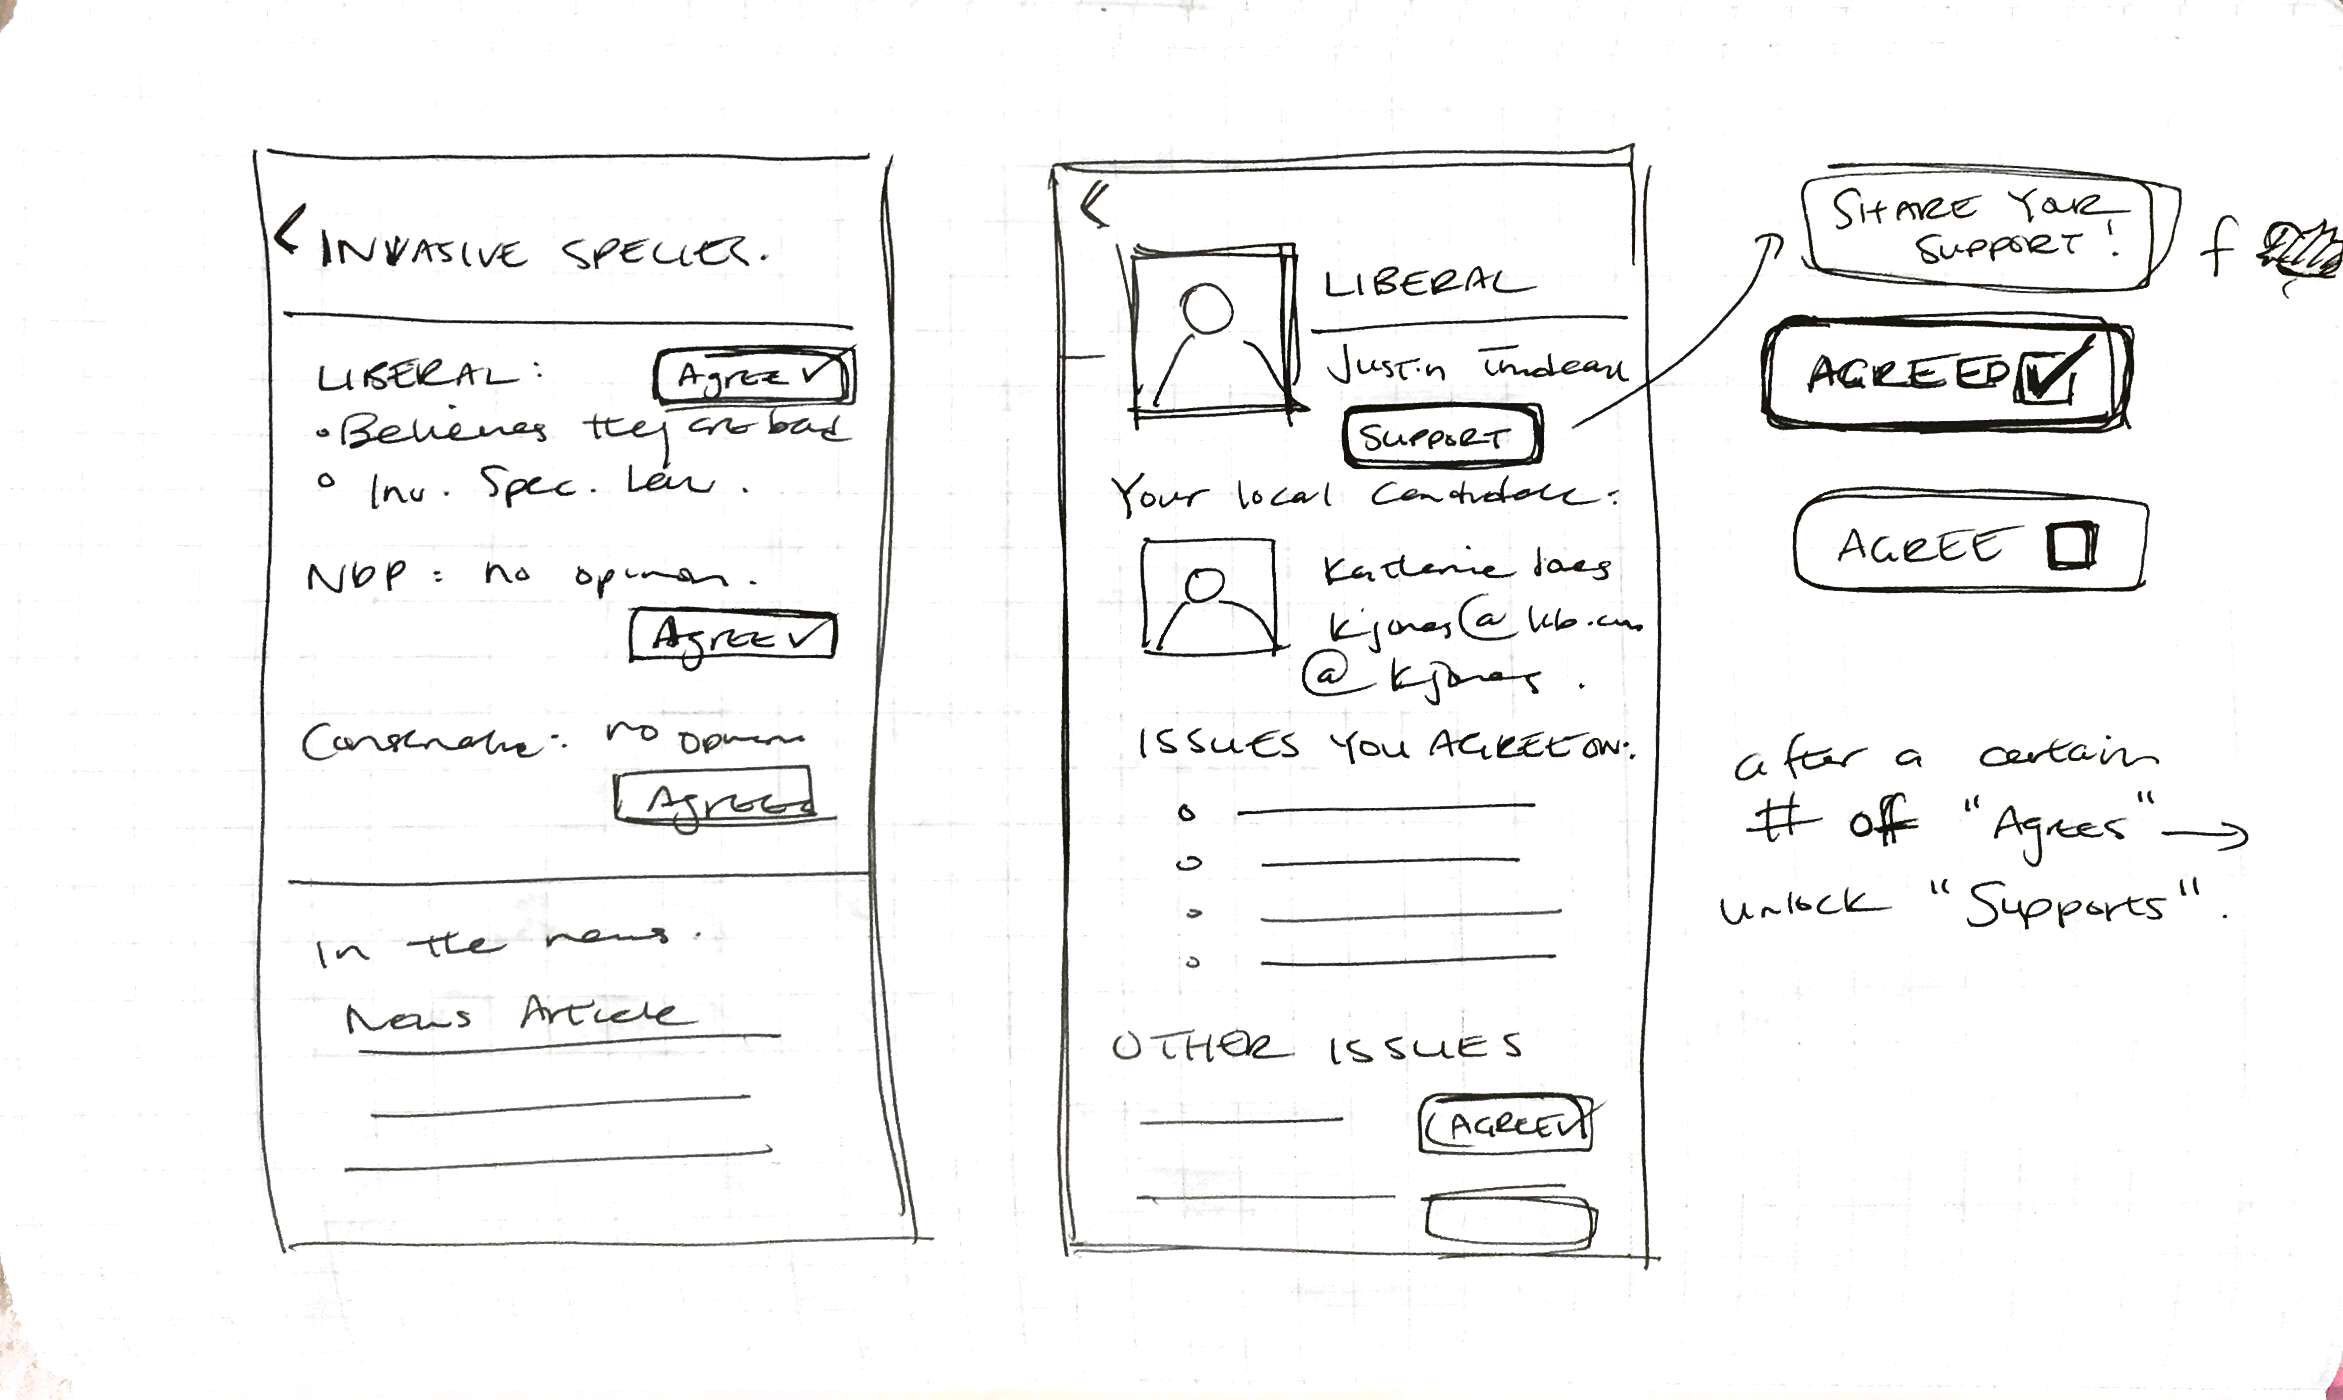 < INVASIVE SPECIES.
LIBERAL: Agree ✓
• Believes they are bad
• Inv. Spec. Law.
NDP: no opinion.
Agree ✓
Conservative: no opinion
Agree
In the news.
News Article
<
LIBERAL
Justin Trudeau
SUPPORT
Your local candidate:
Katherine Jones
kjones@
@kjones.
ISSUES YOU AGREE ON:
OTHER ISSUES
AGREE ✓
SHARE YOUR
SUPPORT!
f
AGREED ✓
AGREE
after a certain
# off "Agrees" →
unlock "Supports".